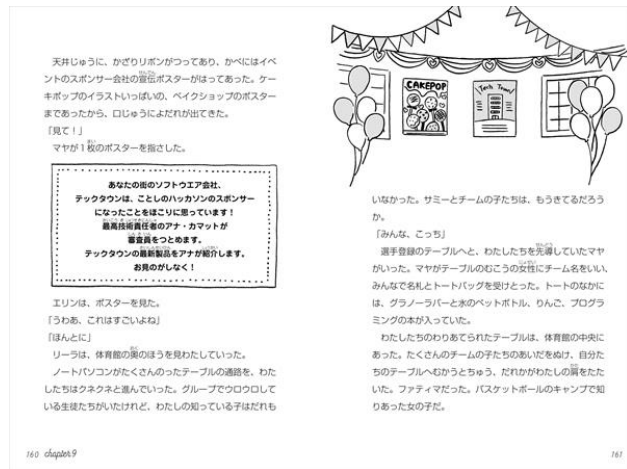 天井じゅうに、かざりリボンがつってあり、かべにはイベ
ントのスポンサー会社の宣伝ポスターがはってあった。ケー
キポップのイラストいっぱいの、ベイクショップのポスター
まであったから、口じゅうによだれが出てきた。
「見て！」
マヤが１枚のポスターを指さした。
あなたの街のソフトウエア会社、
テックタウンは、ことしのハッカソンのスポンサー
になったことをほこりに思っています！
最高技術責任者のアナ・カマットが
審査員をつとめます。
テックタウンの最新製品をアナが紹介します。
お見のがしなく！
エリンは、ポスターを見た。
「うわあ、これはすごいよね」
「ほんとに」
リーラは、体育館の奥のほうを見わたしていった。
ノートパソコンがたくさんのったテーブルの通路を、わた
したちはクネクネと進んでいった。グループでウロウロして
いる生徒たちがいたけれど、わたしの知っている子はだれも
160 chapter9
CAKEPOP
Tech Town!
いなかった。サミーとチームの子たちは、もうきてるだろう
か。
「みんな、こっち」
選手登録のテーブルへと、わたしたちを先導していたマヤ
がいった。マヤがテーブルのむこうの女性にチーム名をいい、
みんなで名札とトートバッグを受けとった。トートのなかに
は、グラノーラバーと水のペットボトル、りんご、プログラ
ミングの本が入っていた。
わたしたちのわりあてられたテーブルは、体育館の中央に
あった。たくさんのチームの子たちのあいだをぬけ、自分た
ちのテーブルへむかうとちゅう、だれかがわたしの肩をたた
いた。ファティマだった。バスケットボールのキャンプで知
りあった女の子だ。
161